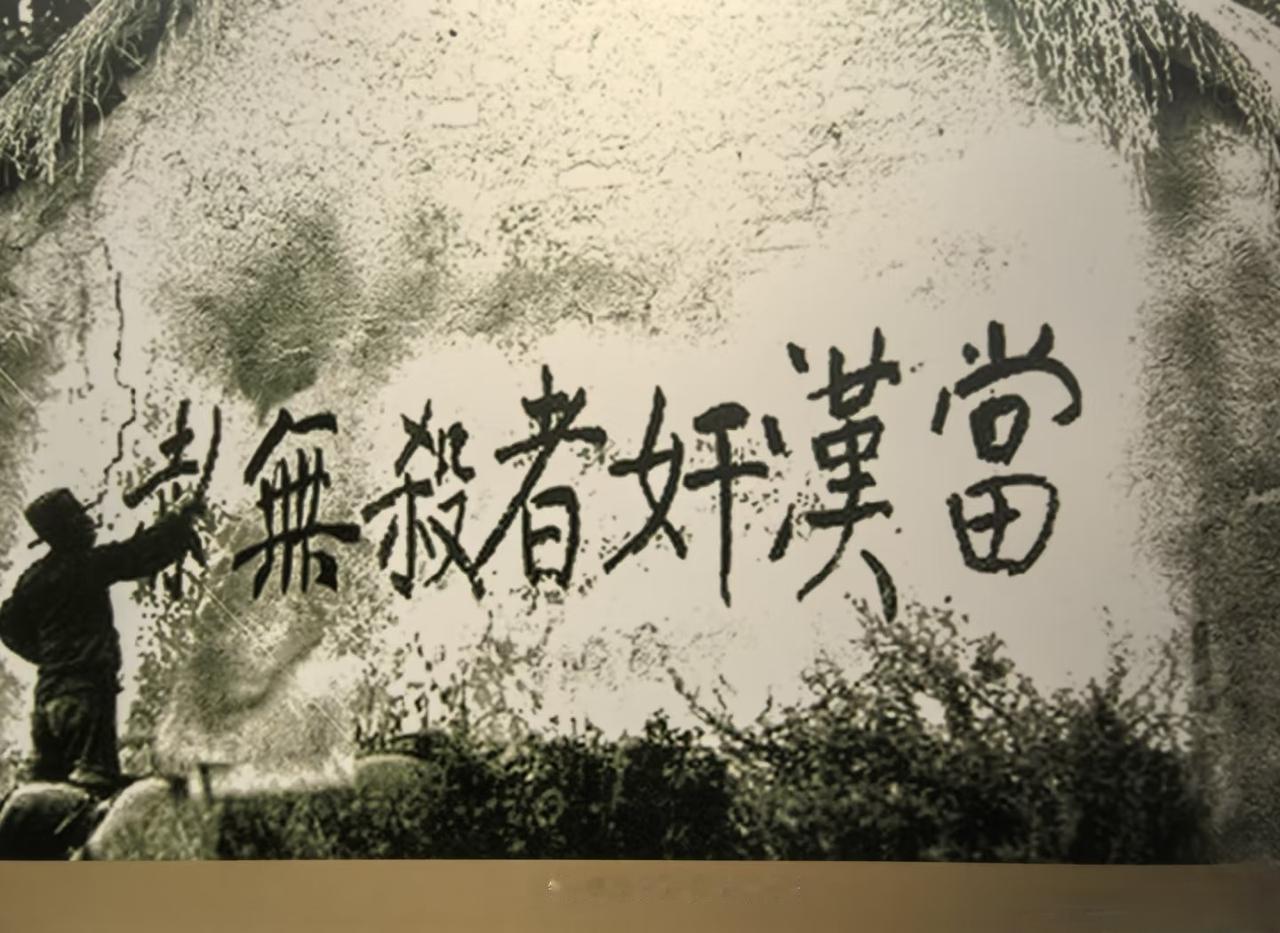 當漢奸者殺無赦